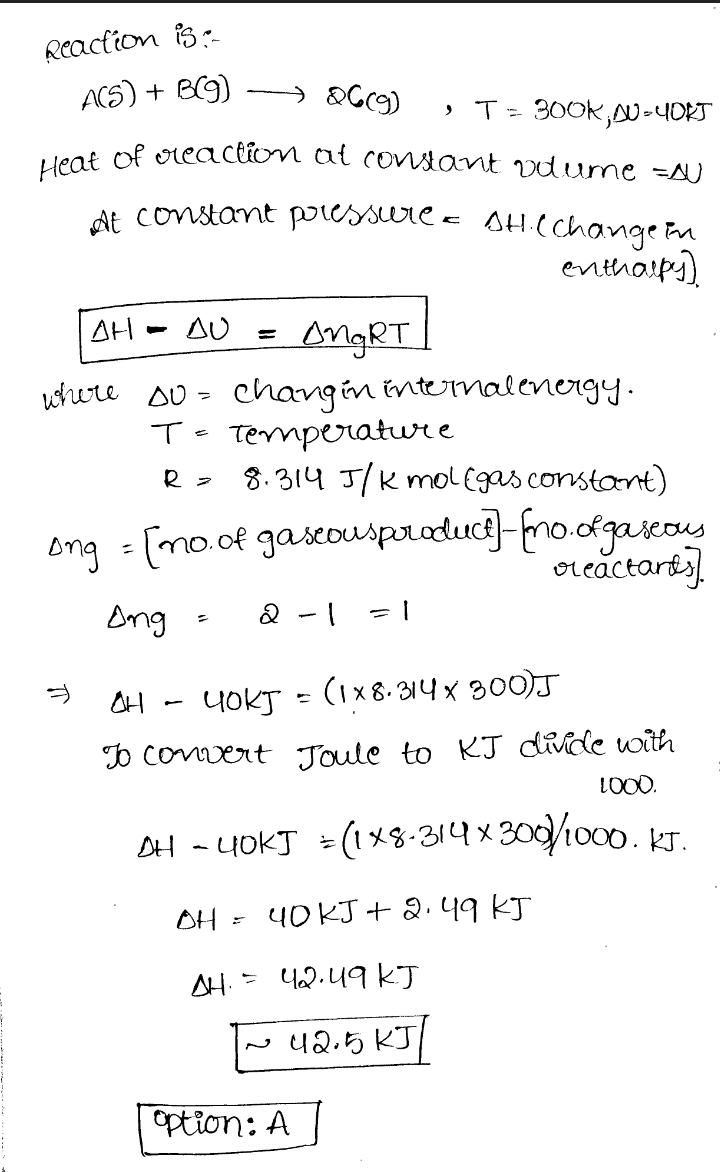 Reaction is:-
A(s) + B(g) → 2C(g) , T = 300K, ΔU=40KJ
Heat of reaction at constant volume =ΔU
At constant pressure = ΔH.(change in
enthalpy).
ΔH - ΔU = ΔngRT
where ΔU = chang in internal energy.
T = Temperature
R = 8.314 J/K mol (gas constant)
Δng = [no. of gaseous product]-[no. of gaseous
reactants].
Δng = 2 - 1 = 1
⇒ ΔH - 40KJ = (1×8.314×300)J
To convert Joule to KJ divide with
1000.
ΔH - 40KJ = (1×8.314×300)/1000. KJ.
ΔH = 40 KJ + 2.49 KJ
ΔH. = 42.49 KJ
~ 42.5 KJ
option: A